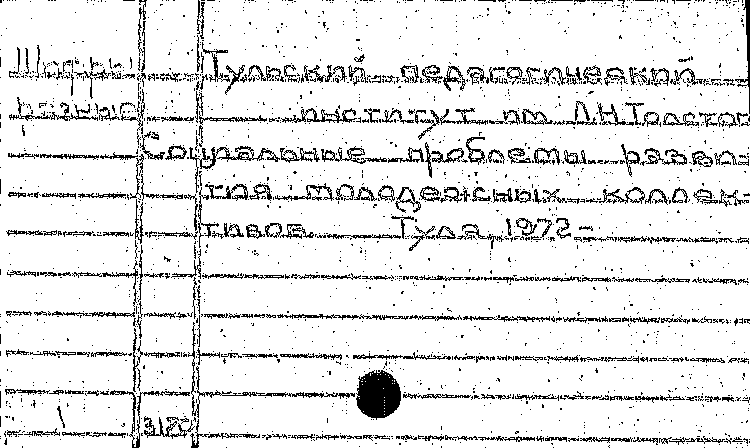 Шифры Тульский педагогический
разные институт им Л.Н.Толстог
Социальные проблемы разви-
тия молодежных коллек-
тивов. Тула, 1972-